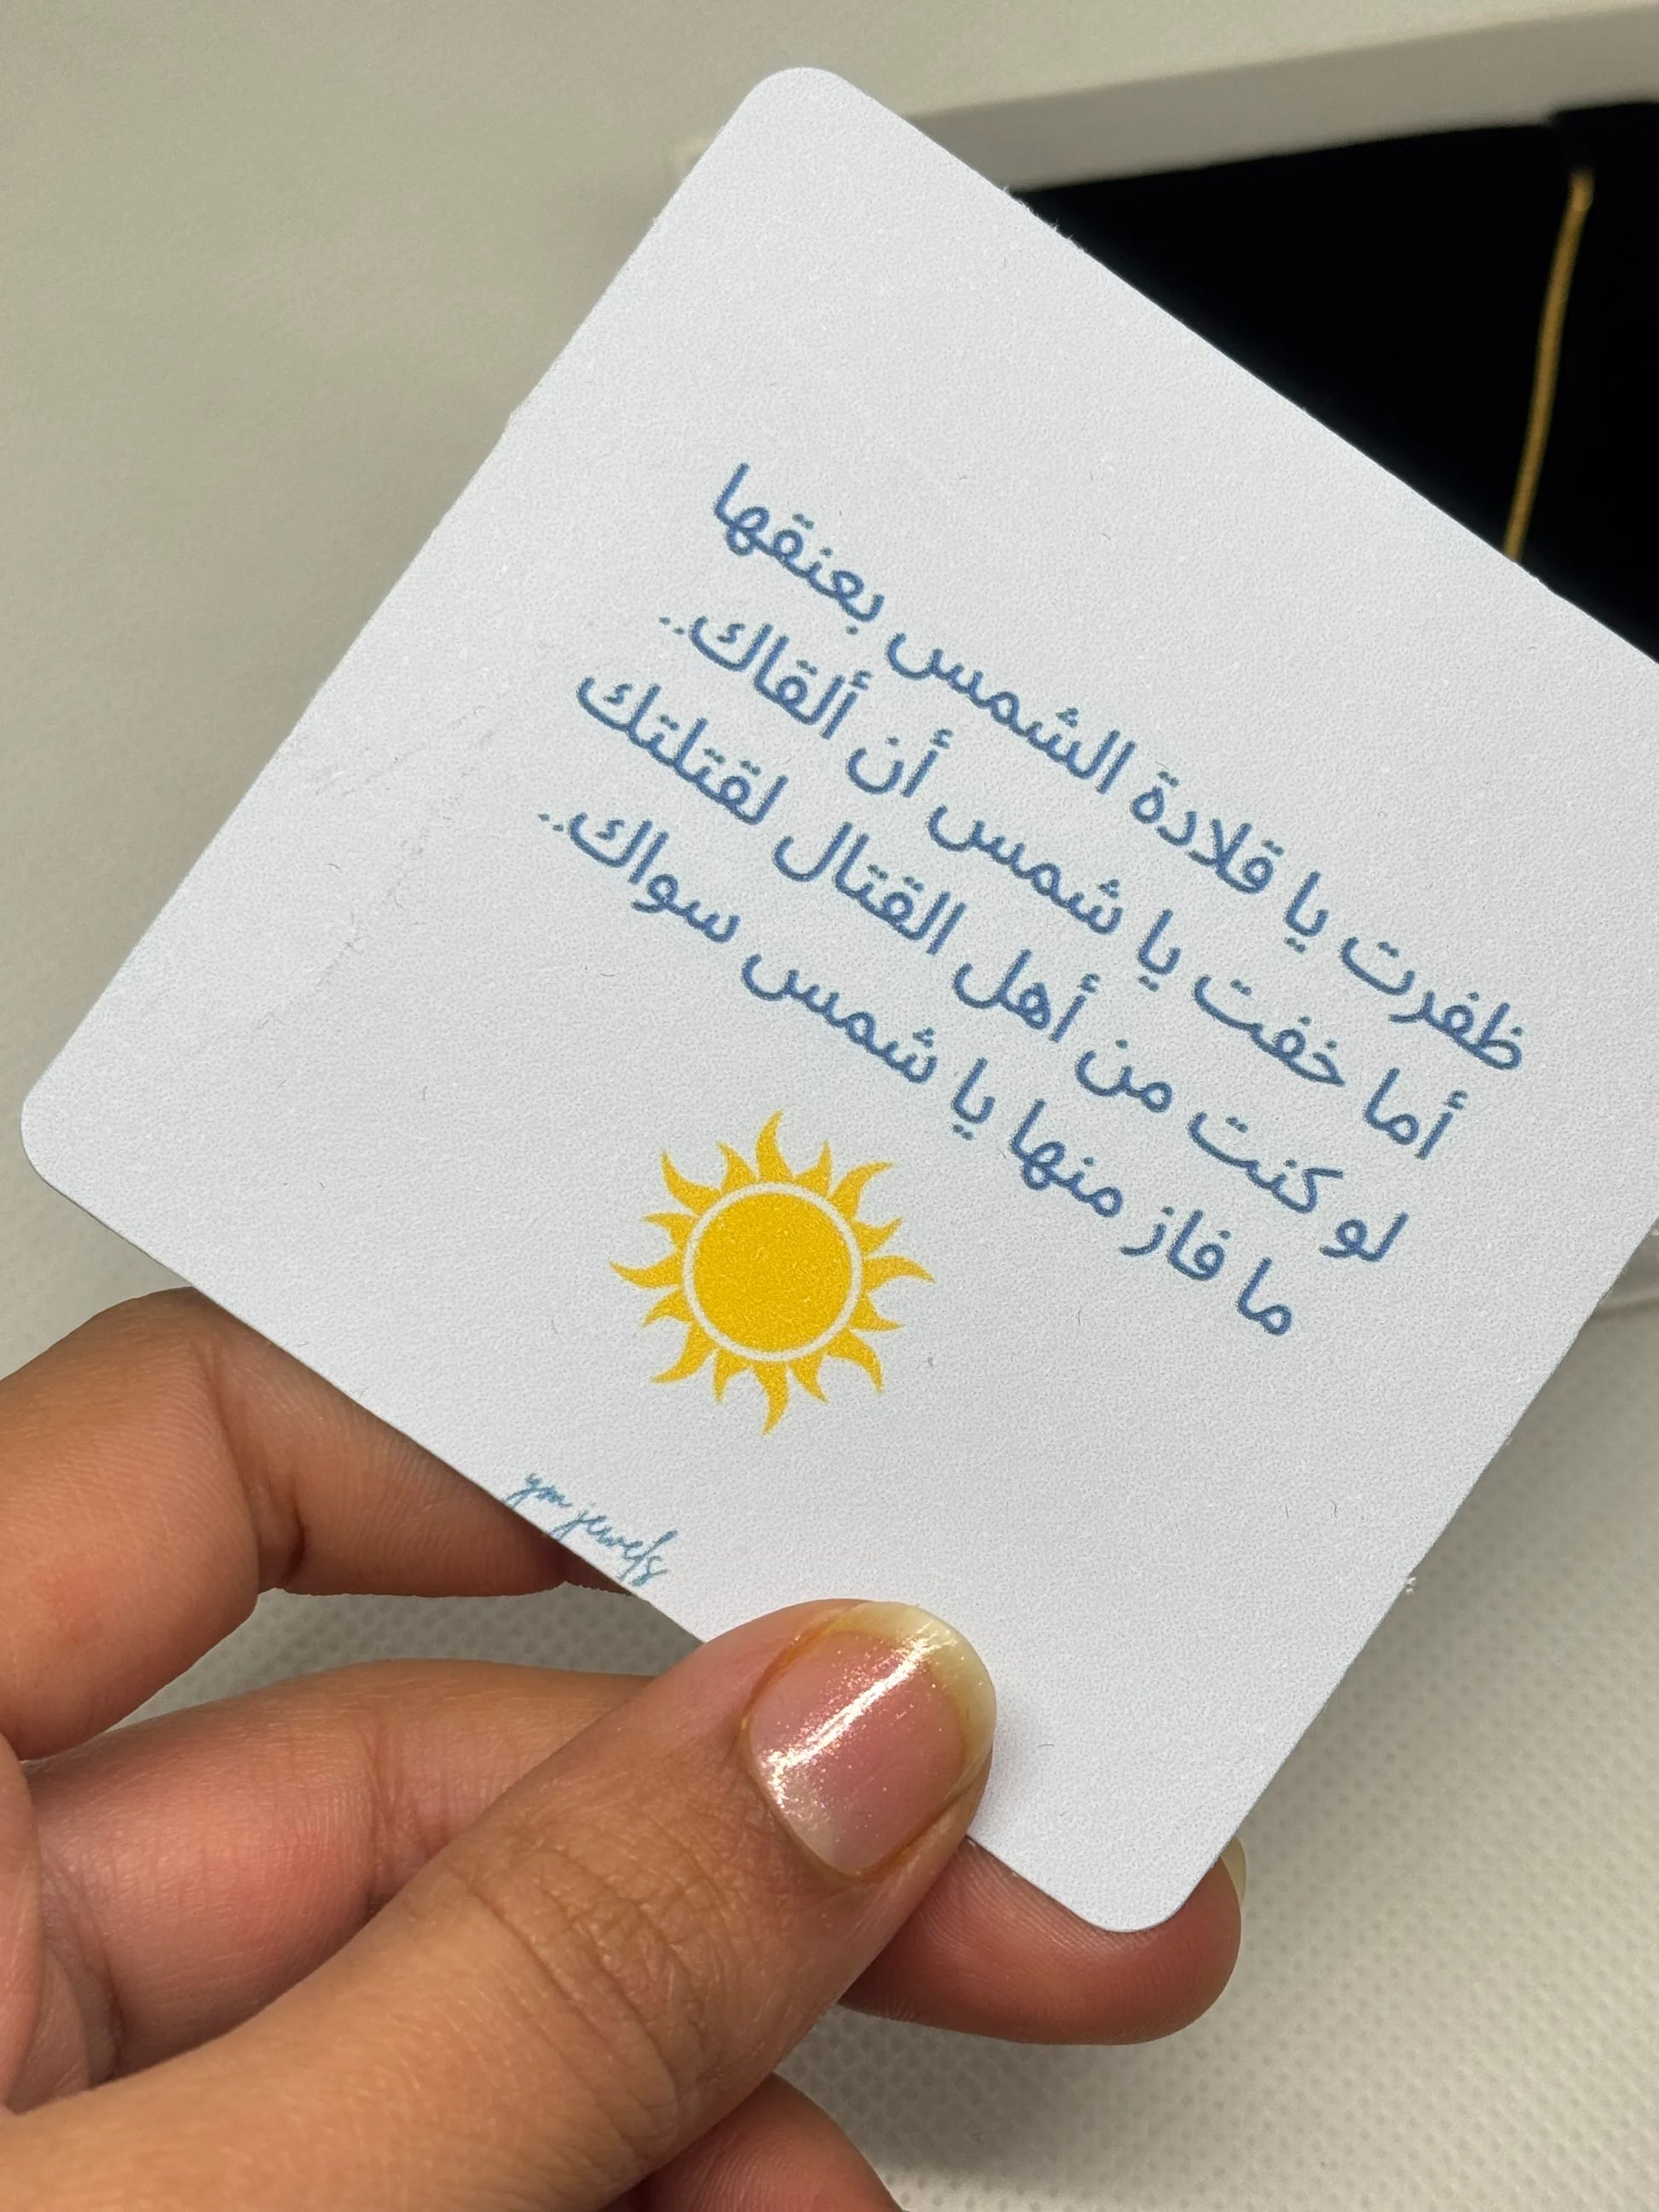 ظفرت يا قلادة الشمس بعنقها
أما خفت يا شمس أن ألقاك..
لو كنت من أهل القتال لقتلتك
ما فاز منها يا شمس سواك..
ym jewels